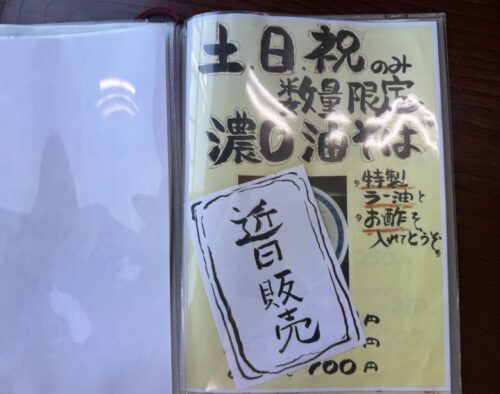 土、日、祝のみ
数量限定
濃口油そば
特製
ラー油と
お酢を
入れてどうぞ。
近日販売
円
円
100円